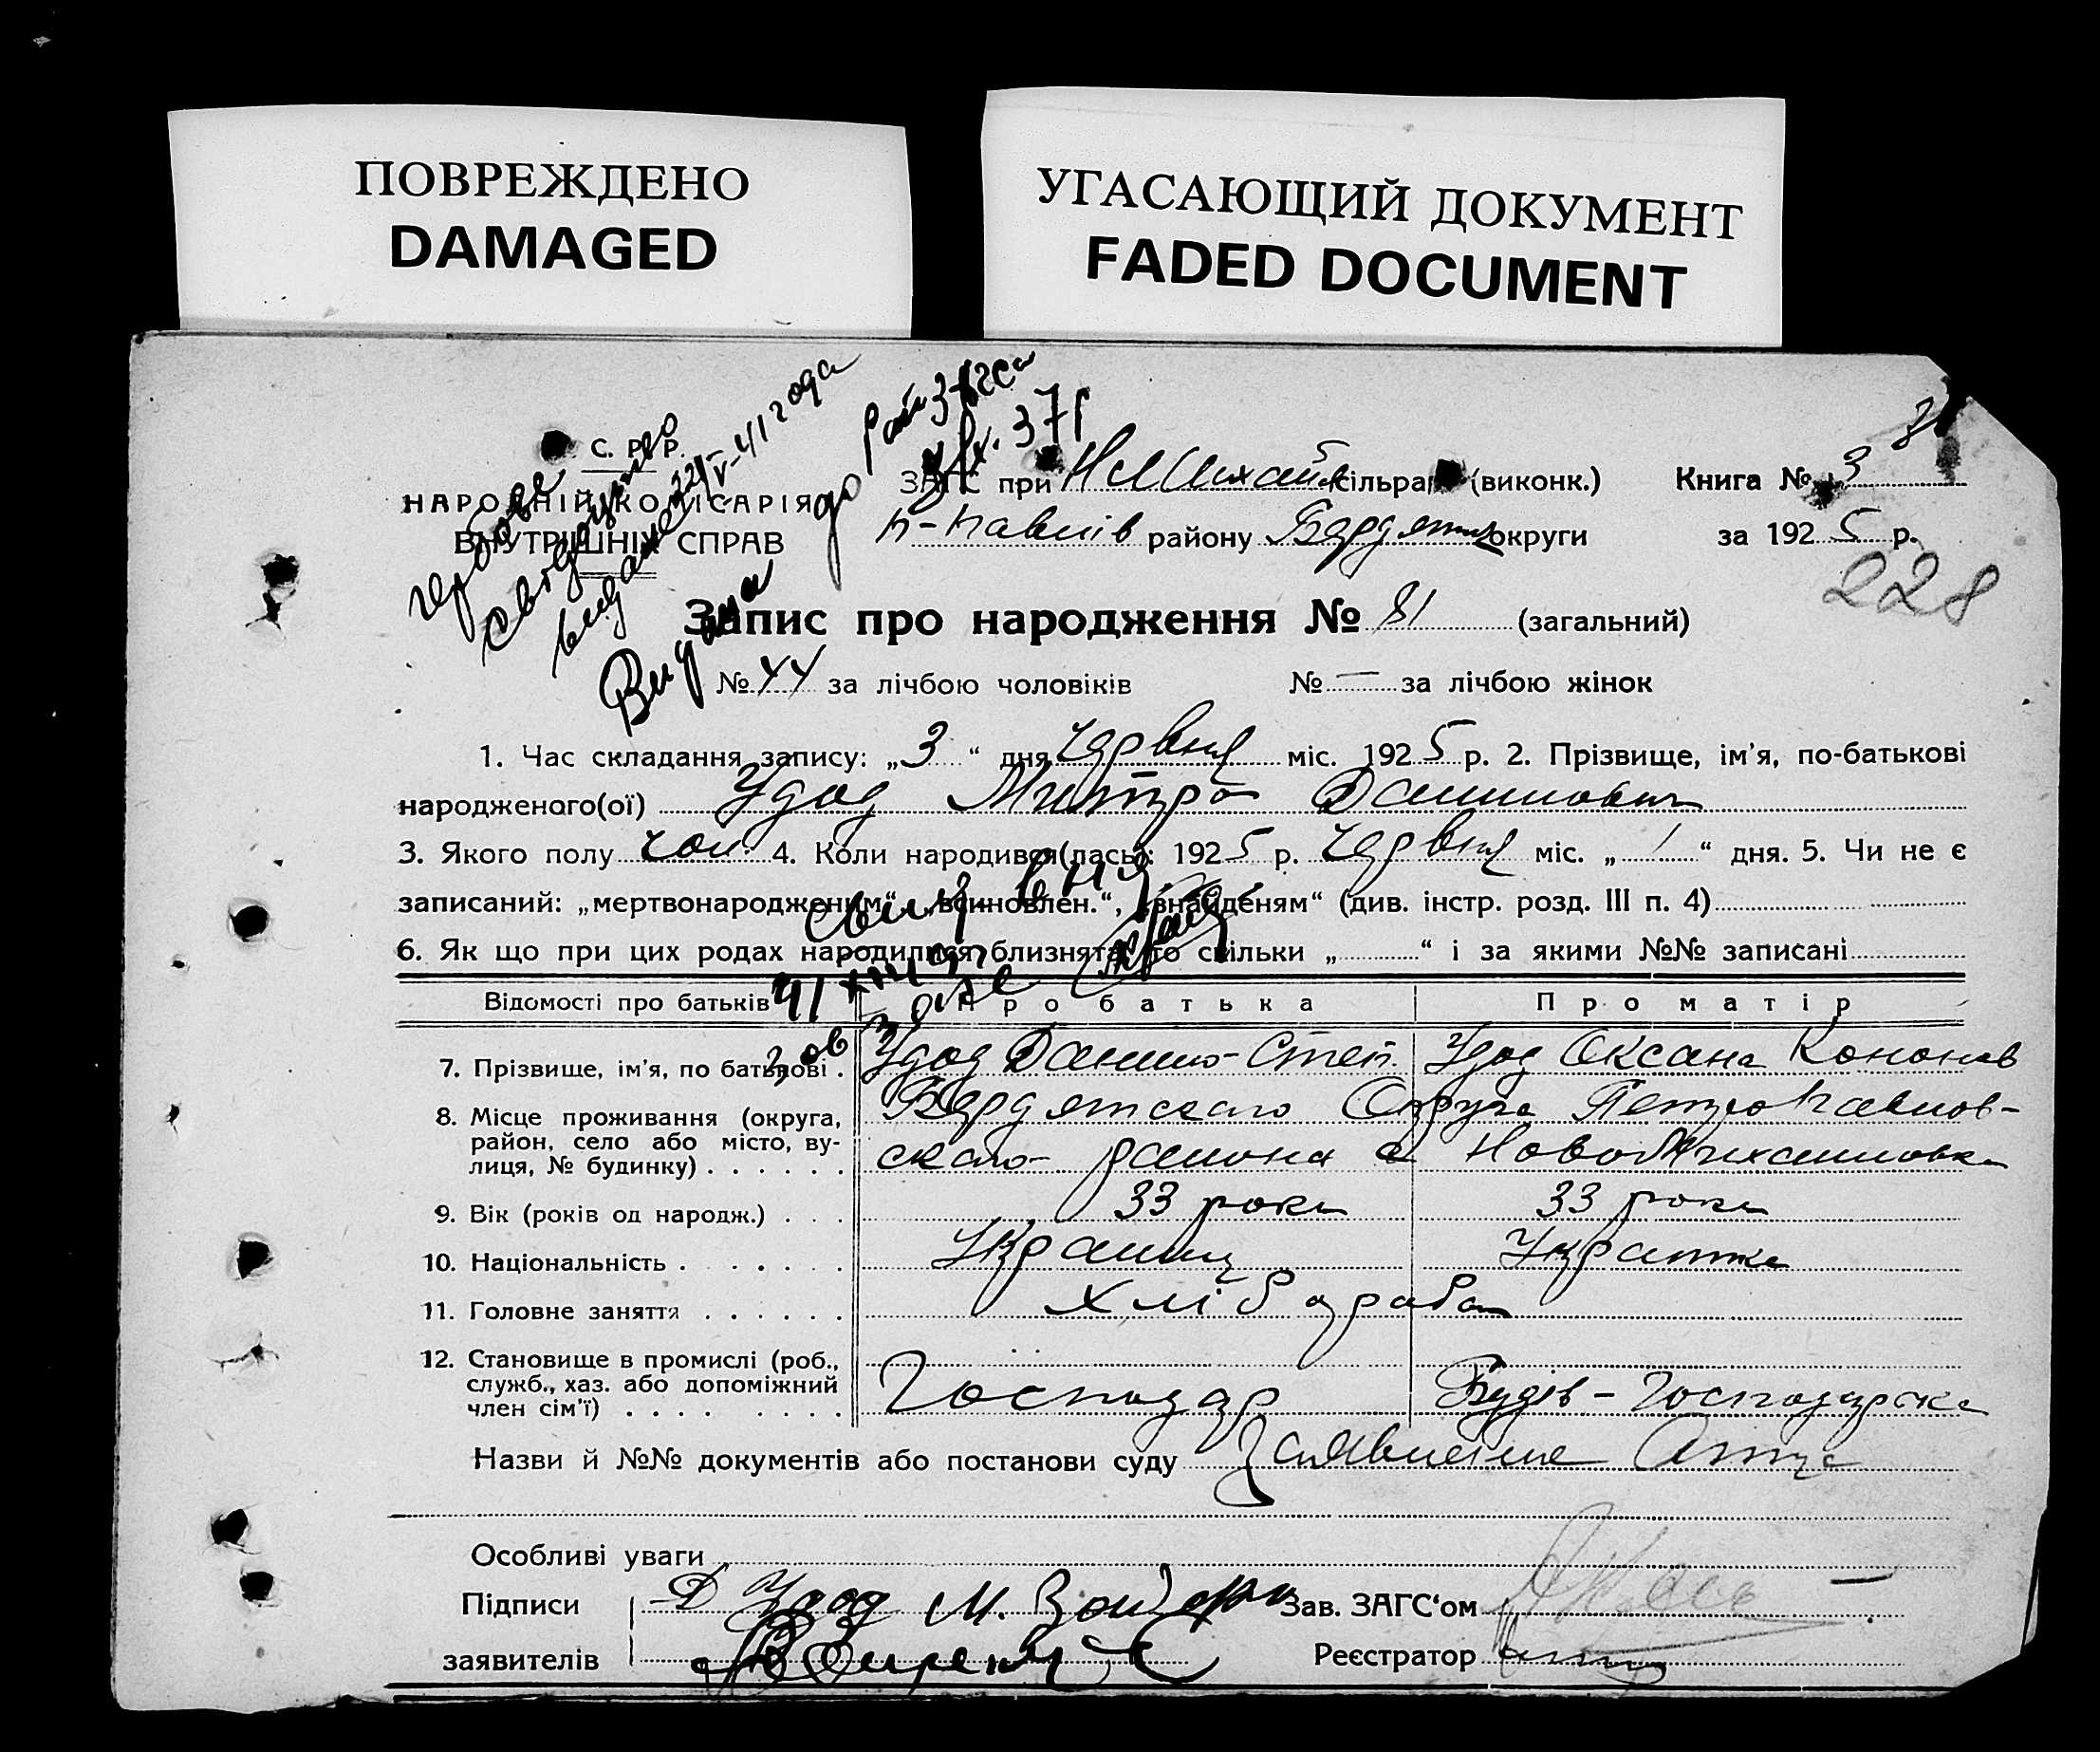 ПОВРЕЖДЕНО
DAMAGED
УГАСАЮЩИЙ ДОКУМЕНТ
FADED DOCUMENT
С. Р. Р.
НАРОДНІЙ КОМІСАРІЯТ
ВНУТРІШНІХ СПРАВ
гербове
свидоцтво
видане
V-41 года
Видана до
37 г
ЗАГС при Н Михайл сільрад (виконк.)
п-павлів району Бердянськ округи
Книга № 3
за 1925 р.
228
Запис про народження № 81 (загальний)
№ 44 за лічбою чоловіків № — за лічбою жінок
1. Час складання запису: „3“ дня червня міс. 1925 р. 2. Прізвище, ім'я, по-батькові
народженого(ої) Удод Митро Данилович
3. Якого полу чол. 4. Коли народився(лась): 1925 р. червня міс. „1“ дня. 5. Чи не є
записаний: „мертвонародженим“, „всиновлен.“, „знайденям“ (див. інстр. розд. III п. 4)
6. Як що при цих родах народилися близнята, то скільки „ “ і за якими №№ записані
Відомості про батьків Про батька Про матір
7. Прізвище, ім'я, по батькові . Удод Данило Степ. Удод Оксана Кононов
8. Місце проживання (округа,
район, село або місто, ву-
лиця, № будинку) . . . . . .
Бердянского Округа Петропавлов-
ского района с НовоМихайловка
9. Вік (років од народж.) . . . 33 роки 33 роки
10. Національність . . . . . . . Українц Українка
11. Головне заняття . . . . . . Хлібороба
12. Становище в промислі (роб.,
служб., хаз. або допоміжний
член сім'ї) . . . . . . . . .
Господар Будів-Господарка
Назви й №№ документів або постанови суду Заявление Отца
Особливі уваги
Підписи Д Удод М. Зав. ЗАГС‘ом
заявителів Реєстратор